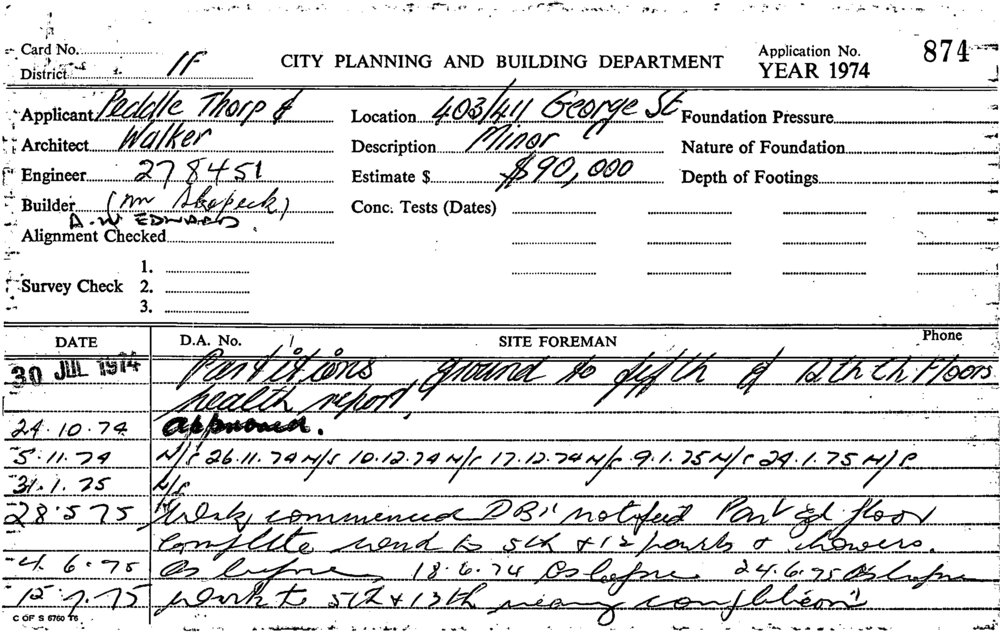 Card No.
District 1F
CITY PLANNING AND BUILDING DEPARTMENT
Application No. 874
YEAR 1974
Applicant Peddle Thorp &
Architect Walker
Engineer 278451
Builder (Mr Skopeck)
A. W EDWARDS
Alignment Checked
Location 403/411 George St
Description Minor
Estimate $ $90,000
Conc. Tests (Dates)
Foundation Pressure
Nature of Foundation
Depth of Footings
Survey Check
1.
2.
3.
DATE D.A. No. SITE FOREMAN Phone
30 JUL 1974 Partitions ground to fifth & 12th Floors
health report
24.10.74 approved.
5.11.74 N/S 26.11.74 N/S 10.12.74 N/S 17.12.74 N/S 9.1.75 N/S 24.1.75 N/S
31.1.75 N/S
28.5.75 Work commenced DBI notified Part floor
complete work to 5th & 12 parts & showers.
4.6.75 As before 18.6.74 As before 24.6.75 As before
15.7.75 work to 5th & 13th nearing completion
C OF S 5760 T6